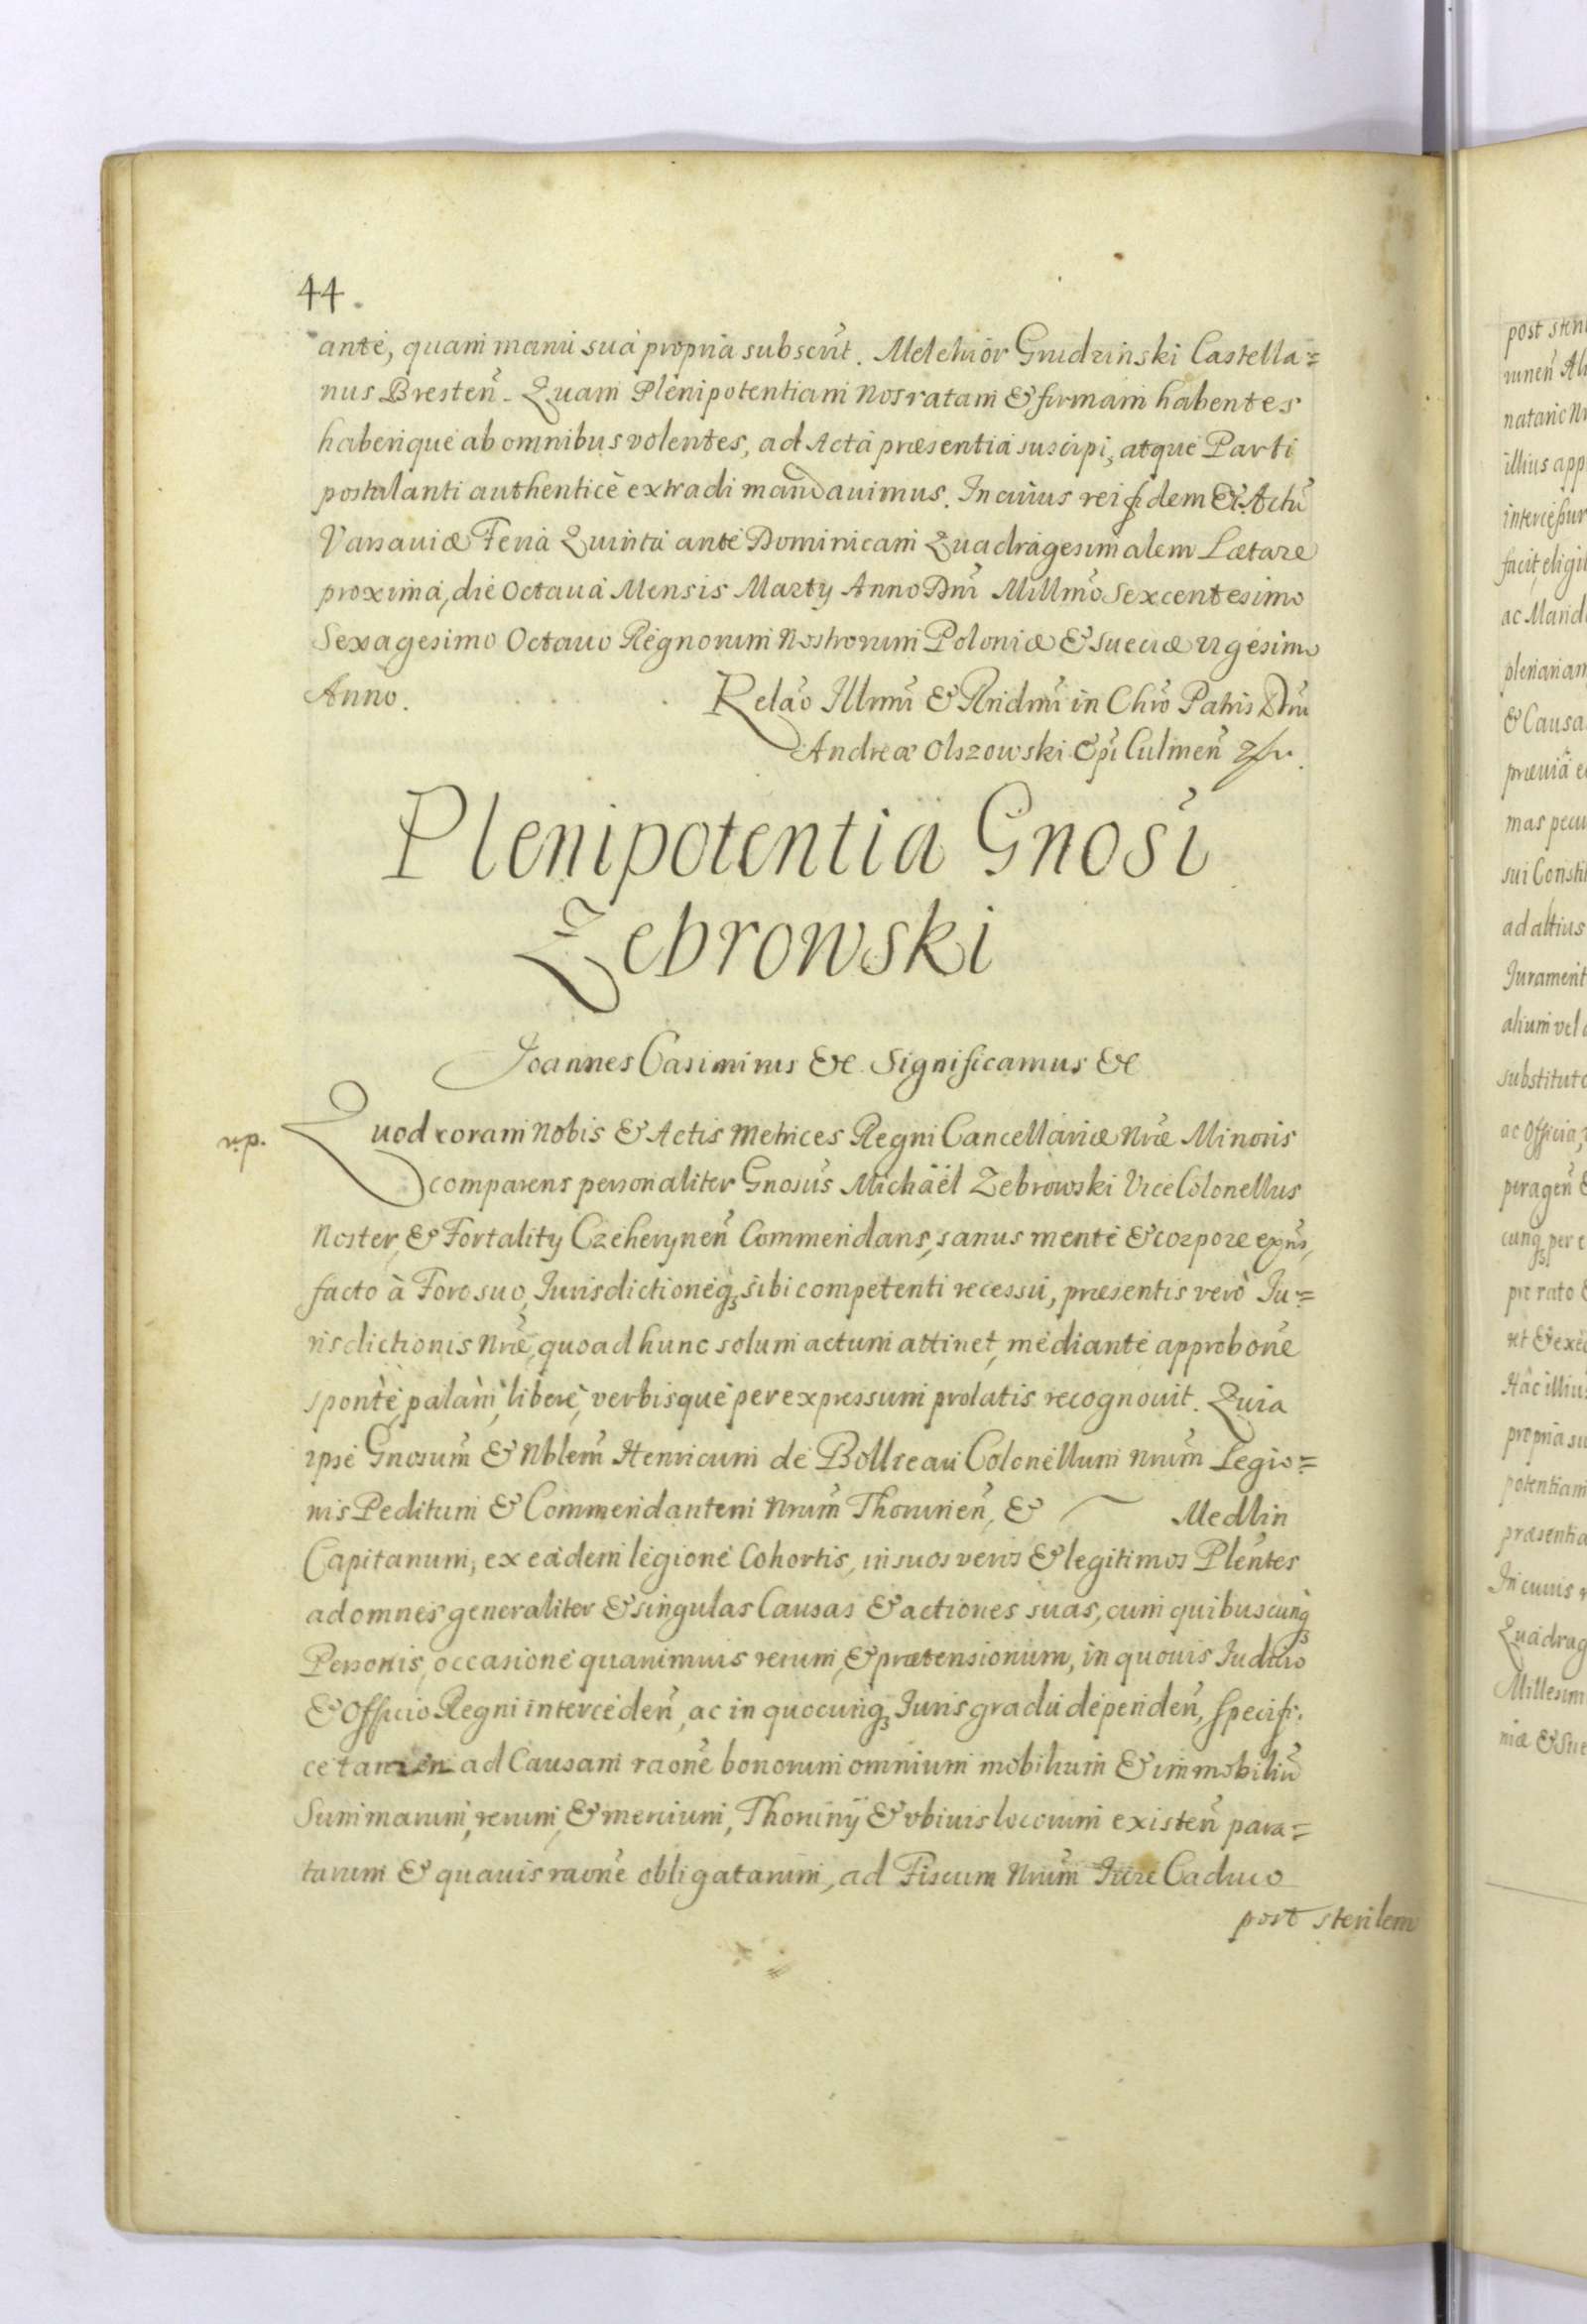 44.
ante, quam manu suâ propria subscrit. Melchior Grudzinski Castella=
nus Bresteñ. Quam Plenipotentiam Nos ratam & firmam habentes
haberique ab omnibus volentes, ad Acta præsentia suscipi, atque Parti
postulanti authenticè extradi mandauimus. In cuius rei fidem &. Actũ
Varsauiæ Feria Quinta ante Dominicam Quadragesimalem Lætare
proxima, die Octaua Mensis Marty Anno Dnĩ Millmõ Sexcentesimo
Sexagesimo Octauo Regnorum Nostrorum Poloniæ & sueciæ vigesimo
Anno.
Relaõ Illmĩ & Rndmĩ in Chrõ Patris Dnĩ
Andreæ Olszowski Epĩ Culmeñ
Plenipotentia Gnosĩ
Zebrowski
Joannes Casimirus &c Significamus &c
n.p.
Quod coram Nobis & Actis Metrices Regni Cancellariæ Nræ Minoris
comparens personaliter Gnosũs Michäel Zebrowski ViceColonellus
Noster, & Fortality Czeheryneñ Commendans, sanus mente & corpore exñs,
facto à Foro suo, Jurisdictioneq, sibi competenti recessu, præsentis verò Ju=
risdictionis Nræ, quoad hunc solum actum attinet, mediante approbonẽ
sponte, palàm, liberè, verbisque per expressum prolatis recognouit. Quia
ipse Gnosum̃ & Nblem̃ Henricum de Bollreau Colonellum Nrum̃ Legio=
nis Peditum & Commendantem Nrum̃ Thoruneñ, & Medlin
Capitanum, ex eadem legione Cohortis, in suos veros & legitimos Pleñtes
ad omnes generaliter & singulas Causas & actiones suas, cum quibuscunq
Personis, occasione quarumuis rerum, & prætensionum, in quouis Judicio
& Officio Regni intercedeñ, ac in quocunq, Juris gradu dependeñ, specifi=
ce tamen ad Causam raonẽ bonorum omnium mobilium & immobiliũ
Summarum, rerum, & mercium, Thoruny & vbiuis locorum existeñ para=
tarum & quauis raonẽ obligatarum, ad Fiscum Nrum̃ Jure Caduco
post sterilem